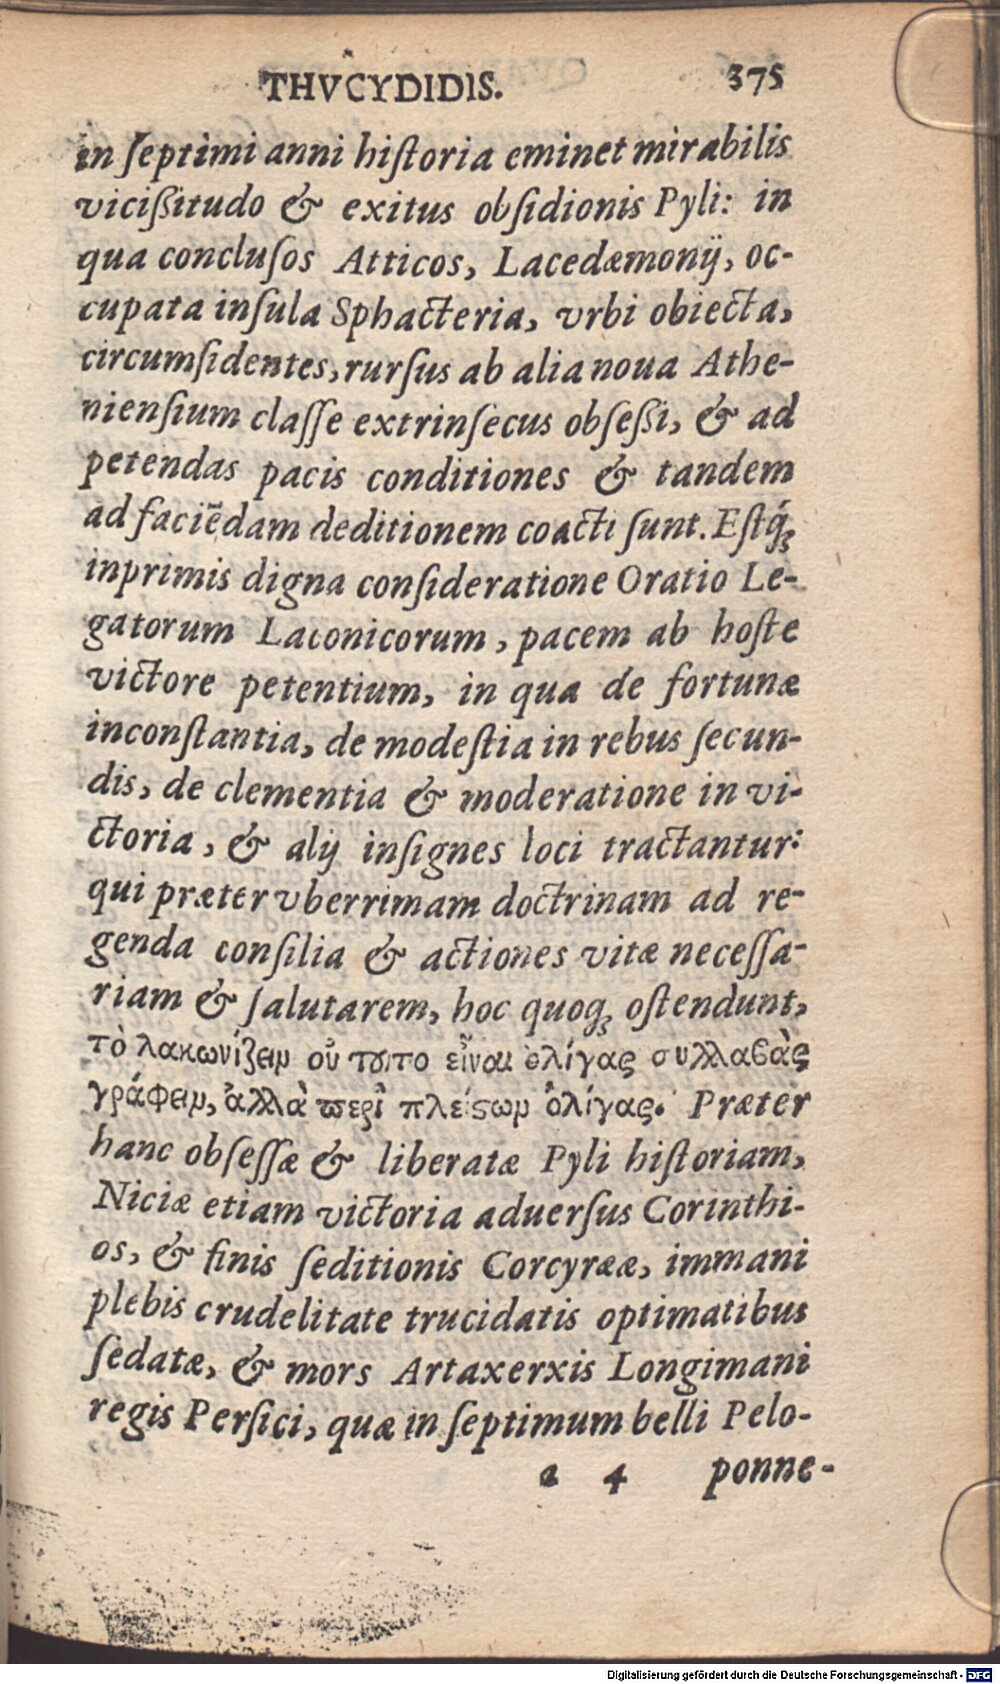 THVCYDIDIS. 375
in ſeptimi anni hiſtoria eminet mirabilis
viciſsitudo & exitus obſidionis Pyli: in
qua concluſos Atticos, Lacedæmonij, oc-
cupata inſula Sphacteria, vrbi obiecta,
circumſidentes, rurſus ab alia noua Athe-
nienſium claſſe extrinſecus obſeſsi, & ad
petendas pacis conditiones & tandem
ad faciẽdam deditionem coacti ſunt. Eſtq́ꝫ
inprimis digna conſideratione Oratio Le-
gatorum Laconicorum, pacem ab hoſte
victore petentium, in qua de fortunæ
inconſtantia, de modeſtia in rebus ſecun-
dis, de clementia & moderatione in vi-
ctoria, & alij inſignes loci tractantur:
qui præter vberrimam doctrinam ad re-
genda conſilia & actiones vitæ neceſſa-
riam & ſalutarem, hoc quoqꝫ oſtendunt,
τὸ λακωνίζειν οὐ τοῦτο εἶναι ὀλίγας συλλαβὰς
γράφειν, ἀλλὰ περὶ πλείστων ὀλίγας. Præter
hanc obſeſſæ & liberatæ Pyli hiſtoriam,
Niciæ etiam victoria aduerſus Corinthi-
os, & finis ſeditionis Corcyrææ, immani
plebis crudelitate trucidatis optimatibus
ſedatæ, & mors Artaxerxis Longimani
regis Perſici, quæ in ſeptimum belli Pelo-
a 4 ponne-
Digitalisierung gefördert durch die Deutsche Forschungsgemeinschaft - DFG